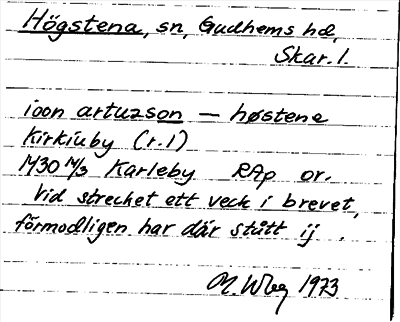 Högstena, sn, Gudhems hd,
Skar. l.
ioon artuzson — høstene
Kirkiuby (r. 1)
1430 14/3 Karleby RAp or.
Vid strecket ett veck i brevet,
förmodligen har där stått ij.
M. Wbg 1973